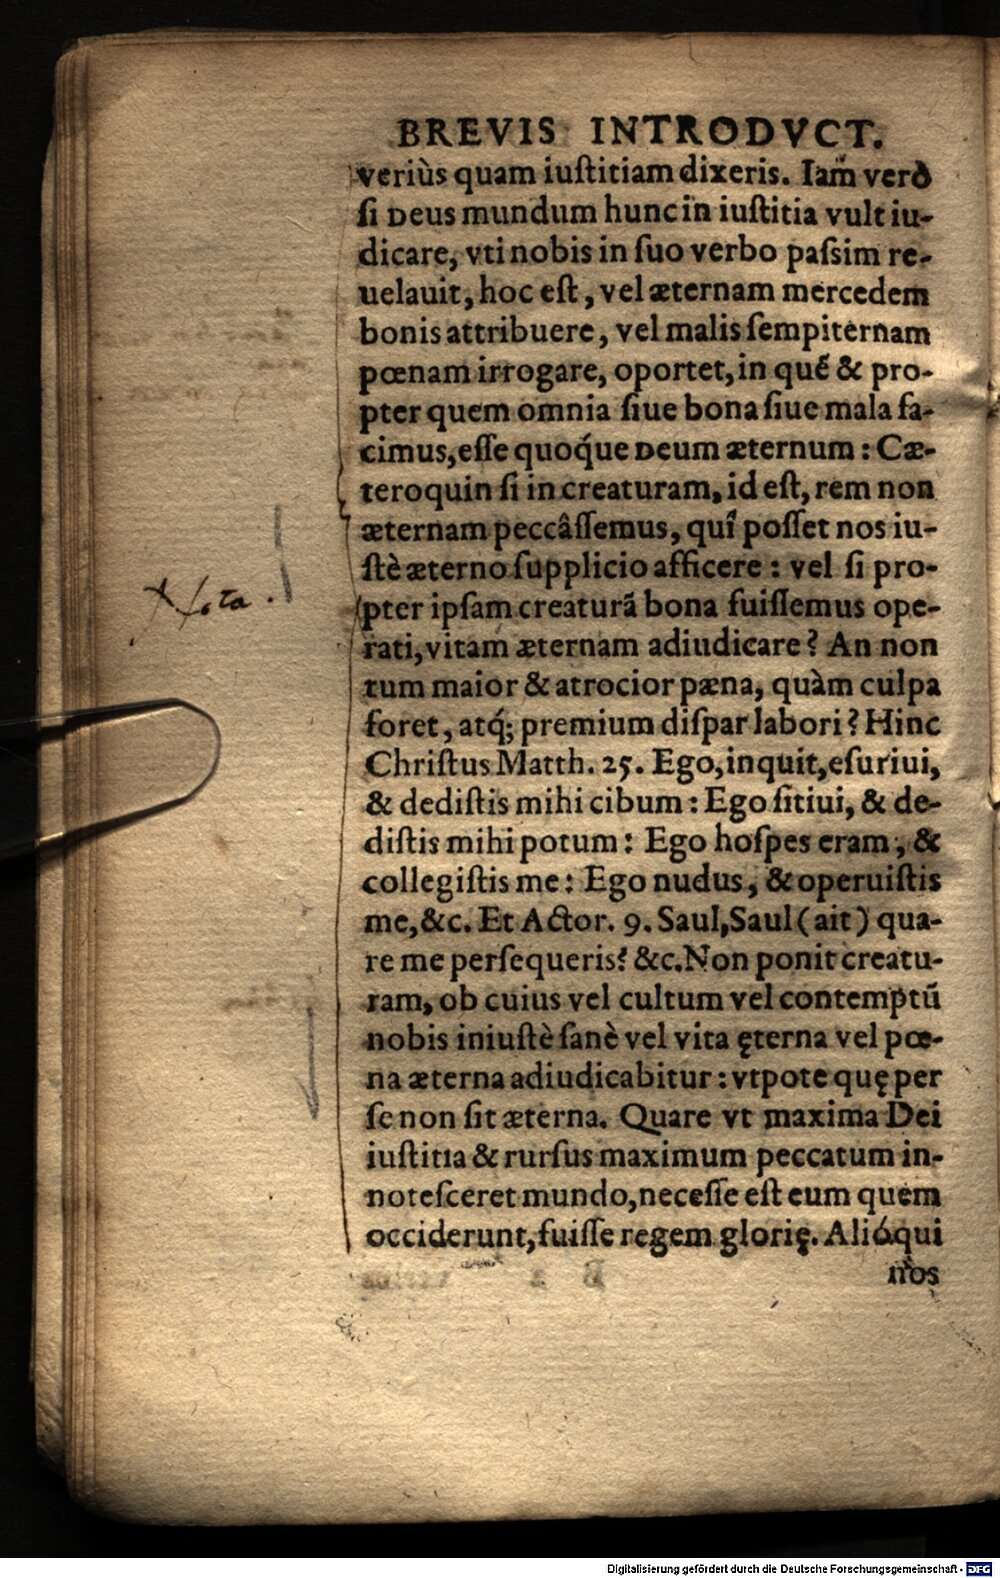 BREVIS INTRODVCT.
veriùs quam iuſtitiam dixeris. Iam verò
ſi Deus mundum hunc in iuſtitia vult iu-
dicare, vti nobis in ſuo verbo paſsim re-
uelauit, hoc eſt, vel æternam mercedem
bonis attribuere, vel malis ſempiternam
pœnam irrogare, oportet, in quẽ & pro-
pter quem omnia ſiue bona ſiue mala fa-
cimus, eſſe quoq́ue Deum æternum: Cæ-
teroquin ſi in creaturam, id eſt, rem non
æternam peccâſſemus, quî poſſet nos iu-
ſtè æterno ſupplicio afficere: vel ſi pro-
pter ipſam creaturã bona fuiſſemus ope-
rati, vitam æternam adiudicare? An non
tum maior & atrocior pæna, quàm culpa
foret, atq́; premium diſpar labori? Hinc
Chriſtus Matth. 25. Ego, inquit, eſuriui,
& dediſtis mihi cibum: Ego ſitiui, & de-
diſtis mihi potum: Ego hoſpes eram, &
collegiſtis me: Ego nudus, & operuiſtis
me, &c. Et Actor. 9. Saul, Saul (ait) qua-
re me perſequeris? &c. Non ponit creatu-
ram, ob cuius vel cultum vel contemptũ
nobis iniuſtè ſanè vel vita ęterna vel pœ-
na æterna adiudicabitur: vtpote quę per
ſe non ſit æterna. Quare vt maxima Dei
iuſtitia & rurſus maximum peccatum in-
noteſceret mundo, neceſſe eſt eum quem
occiderunt, fuiſſe regem glorię. Alióqui
nos
Digitalisierung gefördert durch die Deutsche Forschungsgemeinschaft - DFG